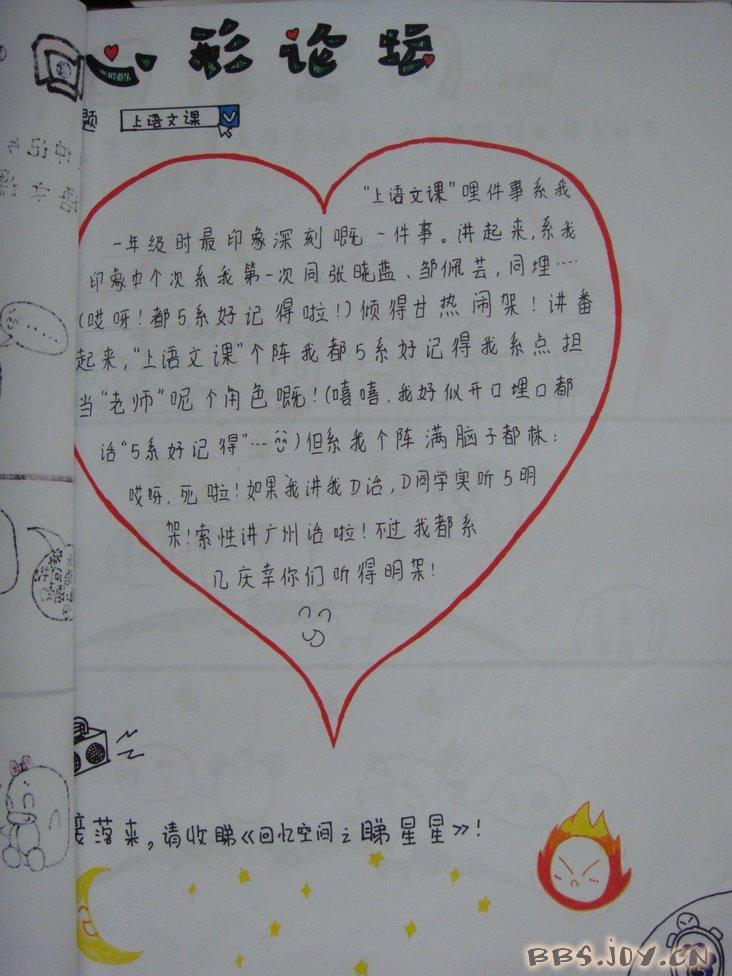 心形论坛
题 上语文课
"上语文课"哩件事系我
一年级时最印象深刻嘅一件事。讲起来,系我
印象中个次系我第一次同张晓蓝、邹佩芸,同埋……
(哎呀!都5系好记得啦!)倾得甘热闹架!讲番
起来,"上语文课"个阵我都5系好记得我系点担
当"老师"呢个角色嘅!(嘻嘻,我好似开口埋口都
话"5系好记得"…)但系我个阵满脑子都系:
哎呀,死啦!如果我讲我D话,D同学实听5明
架!索性讲广州话啦!不过我都系
几庆幸你们听得明架!
接落来,请收睇《回忆空间之睇星星》!
BBS.JOY.CN